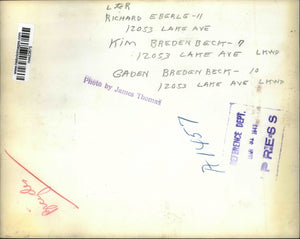 L TO R
RICHARD EBERLE-11
12053 LAKE AVE
KIM BREDENBECK-9
12053 LAKE AVE LKWD
GADEN BREDENBECK- 10
12053 LAKE AVE LKWD
Photo by James Thomas
REFERENCE DEPT.
PRESS